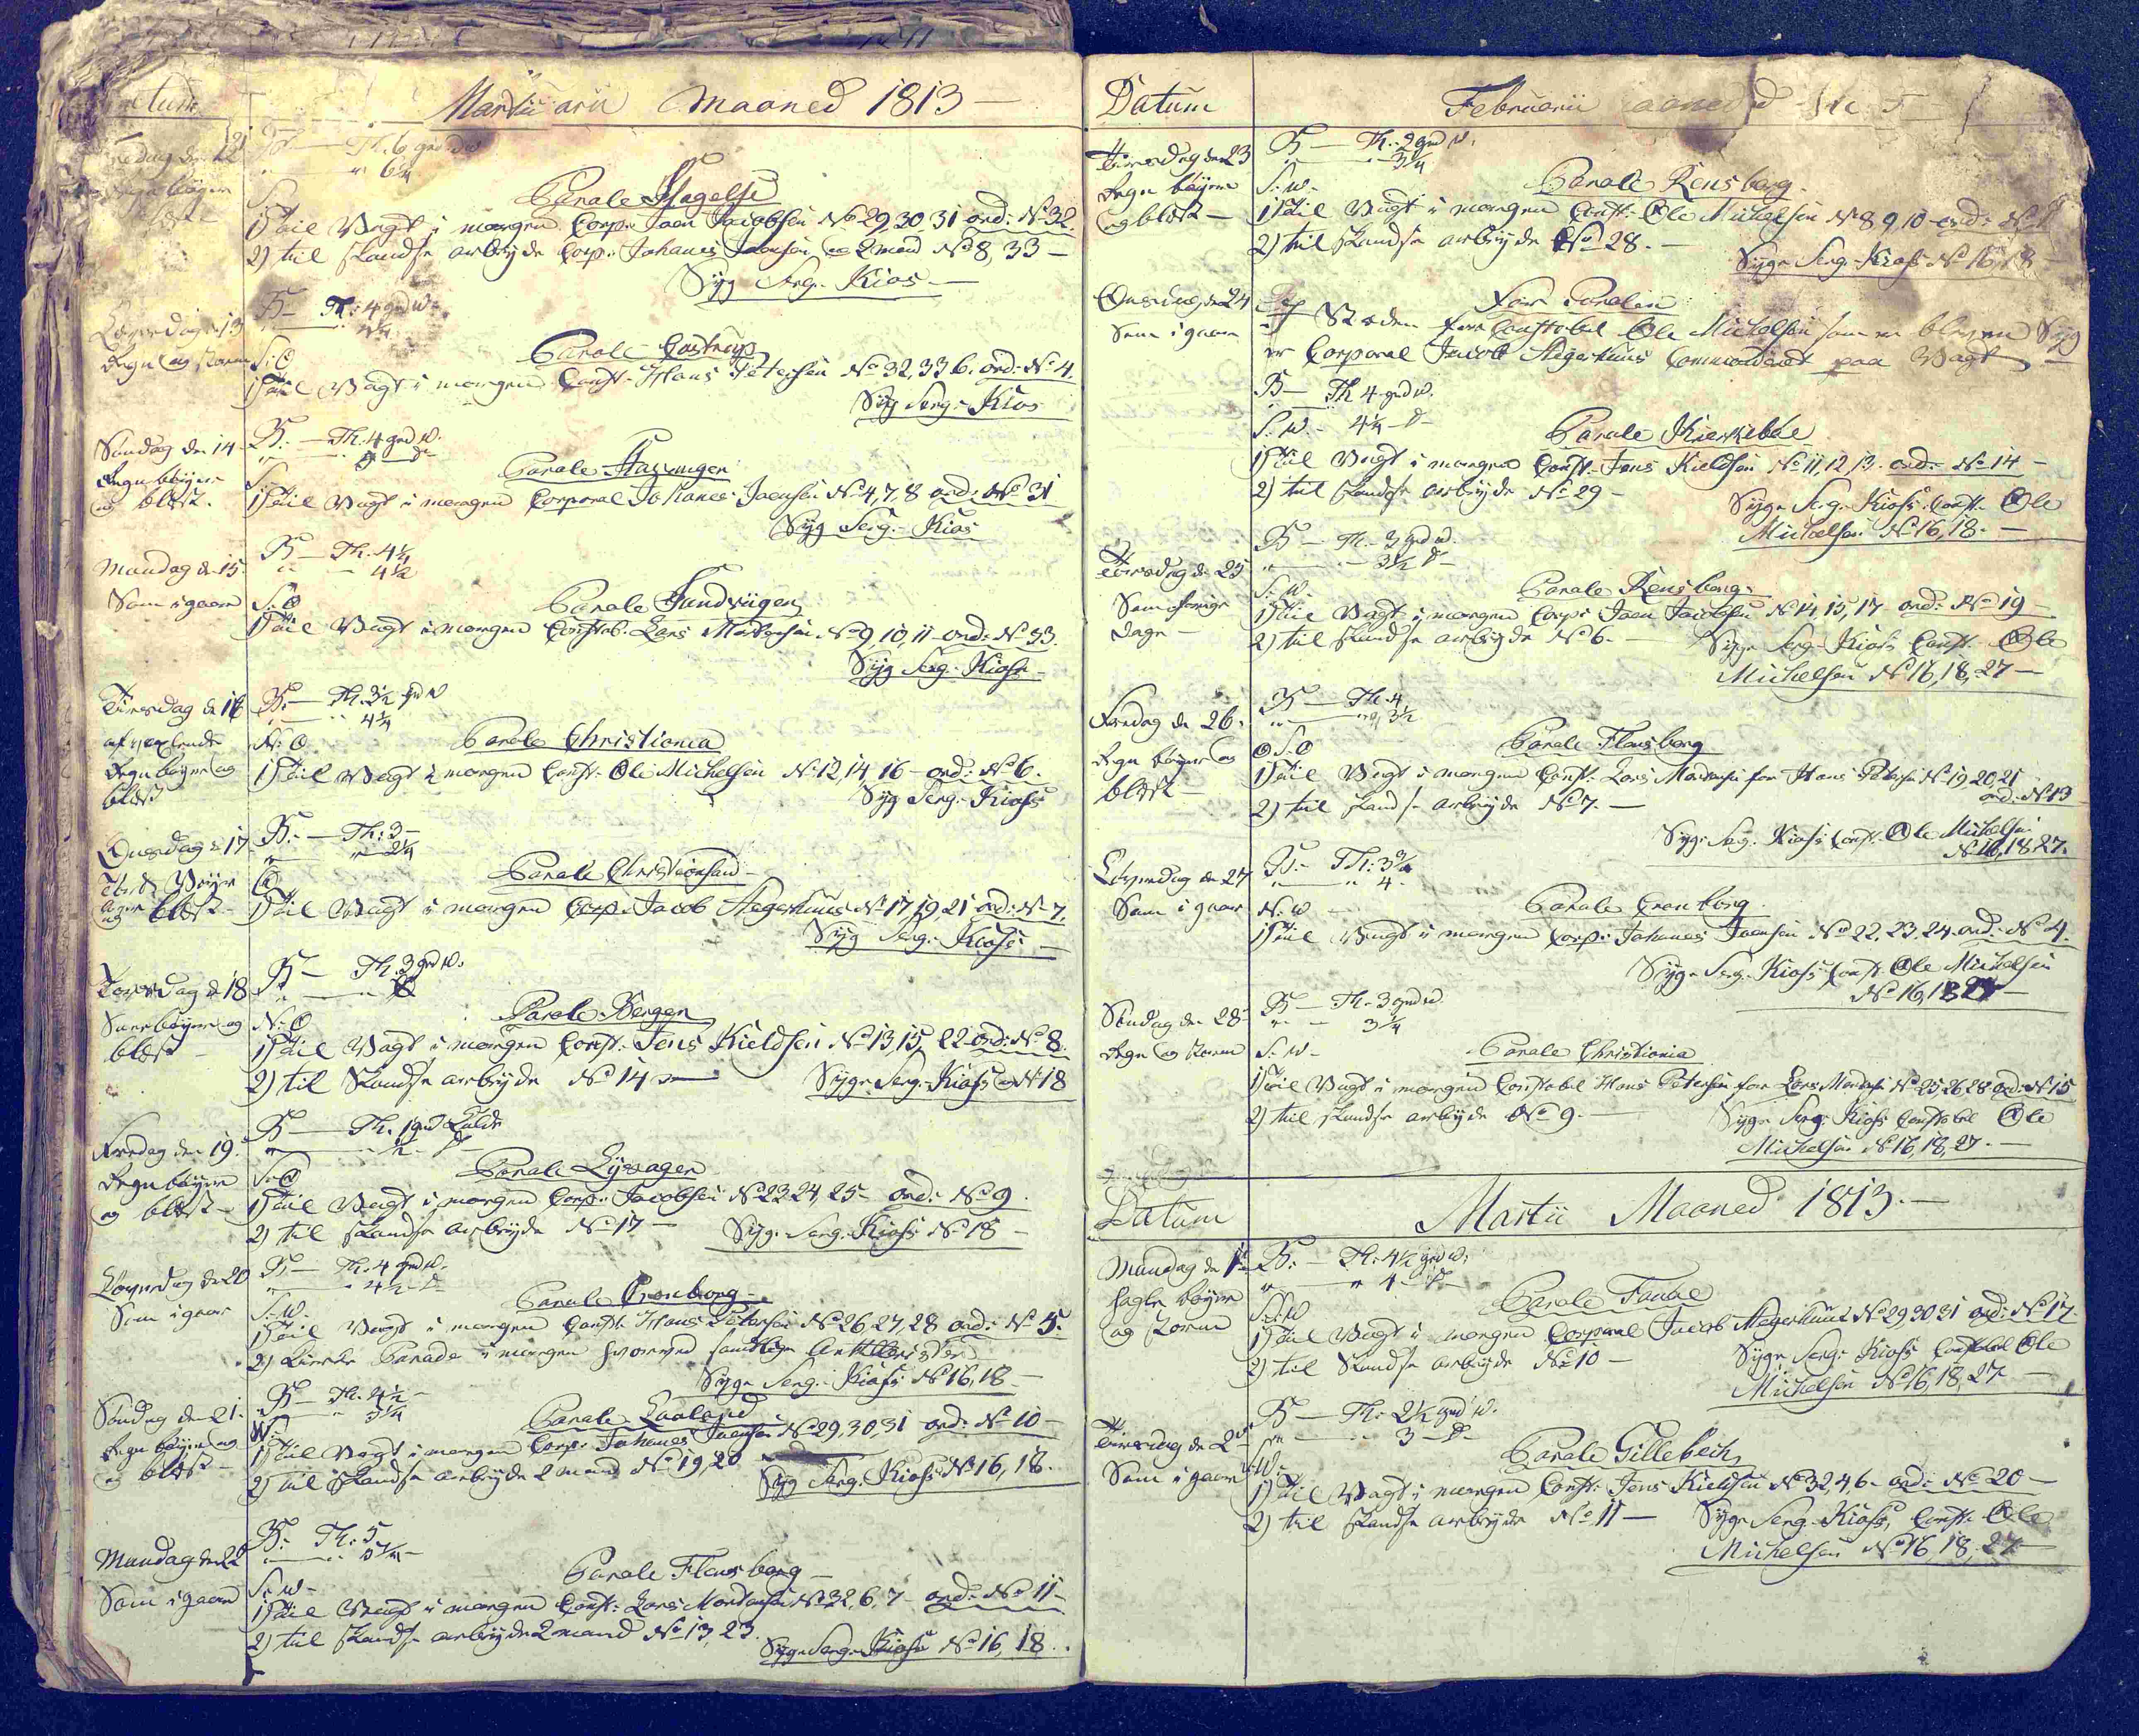 Martii arii Maaned 1813 —
Fredag den 12
Th. 6 grd w
6¼
Parole Slagelse
1) til Vagt i morgen Corp: Joen Jacobsen No 29, 30, 31 ord: No 32.
2) til Skandse arbeyde Corp: Johanes Joensen og 2 mand No 8, 33 —
Syg Serg: Kios —
Løverdag d 13
Regn og storm
B — Th: 4 grd w.
S: O
Parole Castrup
1) til Vagt i morgen Const. Hans Petersen No 32, 33, 6. ord: No 4.
Syg Serg: Kios
Søndag den 14
Regn bøyer
og blæst.
B: — Th. 4 grd w.
Parole Stavanger
1) til Vagt i morgen Corporal Johanes Joensen No 4, 7, 8 ord: No 31
Syg Serg: Kios
Mandag d 15.
Som i gaar
B — Th. 4¼
" — 4½
S: O
Parole Sandviigen
1) til Vagt i morgen Constab. Lars Mortensen No 9, 10, 11 ord: No 33.
Syg Serg: Kioss —
Tirsdag d 16
afvexlende
Regn bøyer og
blæst
B: — Th. 3½ grd w
" — " 4¼
N: O.
Parole Christiania
1) til Vagt i morgen Const: Ole Michelsen No 12, 14, 16 — ord: No 6.
Syg Serg: Kioss
Onsdag d 17
og blæst
B: — Th: 3 —
" — " 2¼
Parole Christiansand —
1) til Vagt i morgen Corp: Jacob Hegerhuus No 17, 19, 21 ord: No 7.
Syg Serg: Kioss —
Torsdag d 18
Snee bøyer og
blæst —
B — Th. 3 grd w:
N: O
Parole Bergen
1) til Vagt i morgen Const: Jens Kieldsen No 13, 15, 22 ord: No 8.
2) til Skandse arbeyde No 14 — Syge Serg: Kioss og No 18
Fredag den 19.
Regn bøyer
og blæst —
B — Th. 1 grd Kulde
" — ½ — do —
S: O
Parole Lysager
1) til Vagt i morgen Corp: Jacobsen No 23 24, 25 — ord: No 9.
2) til Skandse arbeyde No 17 — Syg: Serg: Kioss No 18 —
Løverdag d 20
Som i gaar
B — Th. 4 grd w.
" — " 4½ — do —
S: W.
Parole Cronborg —
1) til Vagt i morgen Const: Hans Petersen No 26, 27, 28 ord: No 5.
2) Kirke Parade i morgen hvorved samtlige Artillerister
Syge Serg: Kioss No 16, 18 —
Søndag den 21.
Regn bøyer og
og blæst —
B — Th. 4½ —
" — " 3¼
Parole Laaland
1) til Vagt i morgen Corp: Johanes Joensen No 29, 30, 31 ord: No 10 —
2) til Skandse arbeyde 2 mand No 19, 20
Syg Serg: Kioss No 16, 18.
Mandag den 22
Som i gaar
B: Th: 5
" — " 5¼ —
S: W —
Parole Flensborg —
1) til Vagt i morgen Const: Lars Mortensen No 32, 6, 7 — ord: No 11 —
2) til Skandse arbeyde 2 mand No 13, 23.
Syge Serg: Kioss No 16, 18.
Datum
Februarii
Tirsdag den 23
Regn bøyer
og blæst —
B — Th. 2 grd w.
" — " 3¼
S: W —
Parole Rensborg.
1) til Vagt i morgen Const: Ole Michelsen No 8 9 10 ord: No
2) til Skandse arbeyde No 28. —
Syge Serg: Kioss No 16, 18 —
Onsdag d 24
Som i gaar
Før Parolen
I Steden for Constabel Ole Michelsen som er bleven Syg
er Corporal Jacob Hegerhuus Commanderet paa Vagt —
B — Th 4 grd w.
S: W. — 4¼ — do —
Parole Kierteböe
1) til Vagt i morgen Const: Jens Kieldsen No 11, 12, 13. ord: No 14 —
2) til Skandse arbeyde No 29 —
Syge Serg: Kioss Const: Ole
Michelsen No 16, 18. —
Torsdag d 25
Som forrige
dage —
B — Th. — 3 grd w.
" — " — 3½ do —
S: W.
Parole Rensborg.
1) til Vagt i morgen Corp: Joen Jacobsen No 14, 15, 17 ord: No 19 —
2) til Skandse arbeyde No 6. — Syge Serg: Kioss Const: Ole
Michelsen No 16, 18, 27 —
Fredag d 26.
Regn bøyer og
blæst —
B — Th. 4
" — " 3½
S: O
Parole Flensborg
1) til Vagt i morgen Const: Lars Mortensen for Hans Petersen No 19, 20, 21
ord: No 13
2) til Skandse arbeyde No 7. —
Syge Serg: Kioss Const: Ole Michelsen
No 16, 18 27.
Løverdag d 27
Som i gaar
B — Th: 3¾
" — " 4.
N: W
Parole Cronborg.
1) til Vagt i morgen Corp: Johanes Joensen No 22, 23, 24. ord: No 4.
Syge Serg: Kioss Const: Ole Michelsen
No 16, 18 27 —
Søndag den 28
Regn og storm
B — Th. 3 grd w
" — 3¼
S: W —
Parole Christiania
1) til Vagt i morgen Constabel Hans Petersen for Lars Mortensen No 25, 26 28 ord: No 15
2) til Skandse arbeyde No 9. — Syge Serg: Kioss Constabel Ole
Michelsen No 16, 18, 27. —
Datum
Martii Maaned 1813. —
Mandag d 1te
Hagle bøyer
og Storm
B: — Th: 4½ grd w:
" — " 4 — do —
S: W
Parole Faaboe
1) til Vagt i morgen Corporal Jacob Hegerhuus No 29, 30 31 ord: No 17
2) til Skandse arbeyde No 10 —
Syge Serg: Kioss Constabel Ole
Michelsen No 16, 18, 27 —
Tirsdag d 2
Som i gaar
B — Th: 2½ grd w.
" — " 3 — do —
Parole Gillebech
1) til Vagt i morgen Const: Jens Kieldsen No 32, 4, 6 — ord: No 20 —
2) til Skandse arbeyde No 11 — Syge Serg: Kioss, Const: Ole
Michelsen No 16, 18, 27 —